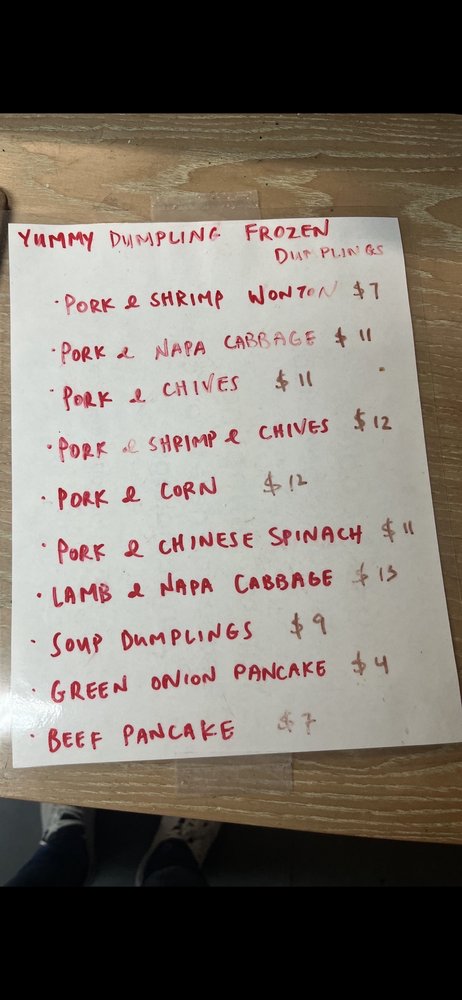 YUMMY DUMPLING FROZEN
DUMPLINGS
· PORK & SHRIMP WONTON $7
· PORK & NAPA CABBAGE $11
· PORK & CHIVES $11
· PORK & SHRIMP & CHIVES $12
· PORK & CORN $12
· PORK & CHINESE SPINACH $11
· LAMB & NAPA CABBAGE $13
· SOUP DUMPLINGS $9
· GREEN ONION PANCAKE $4
· BEEF PANCAKE $7